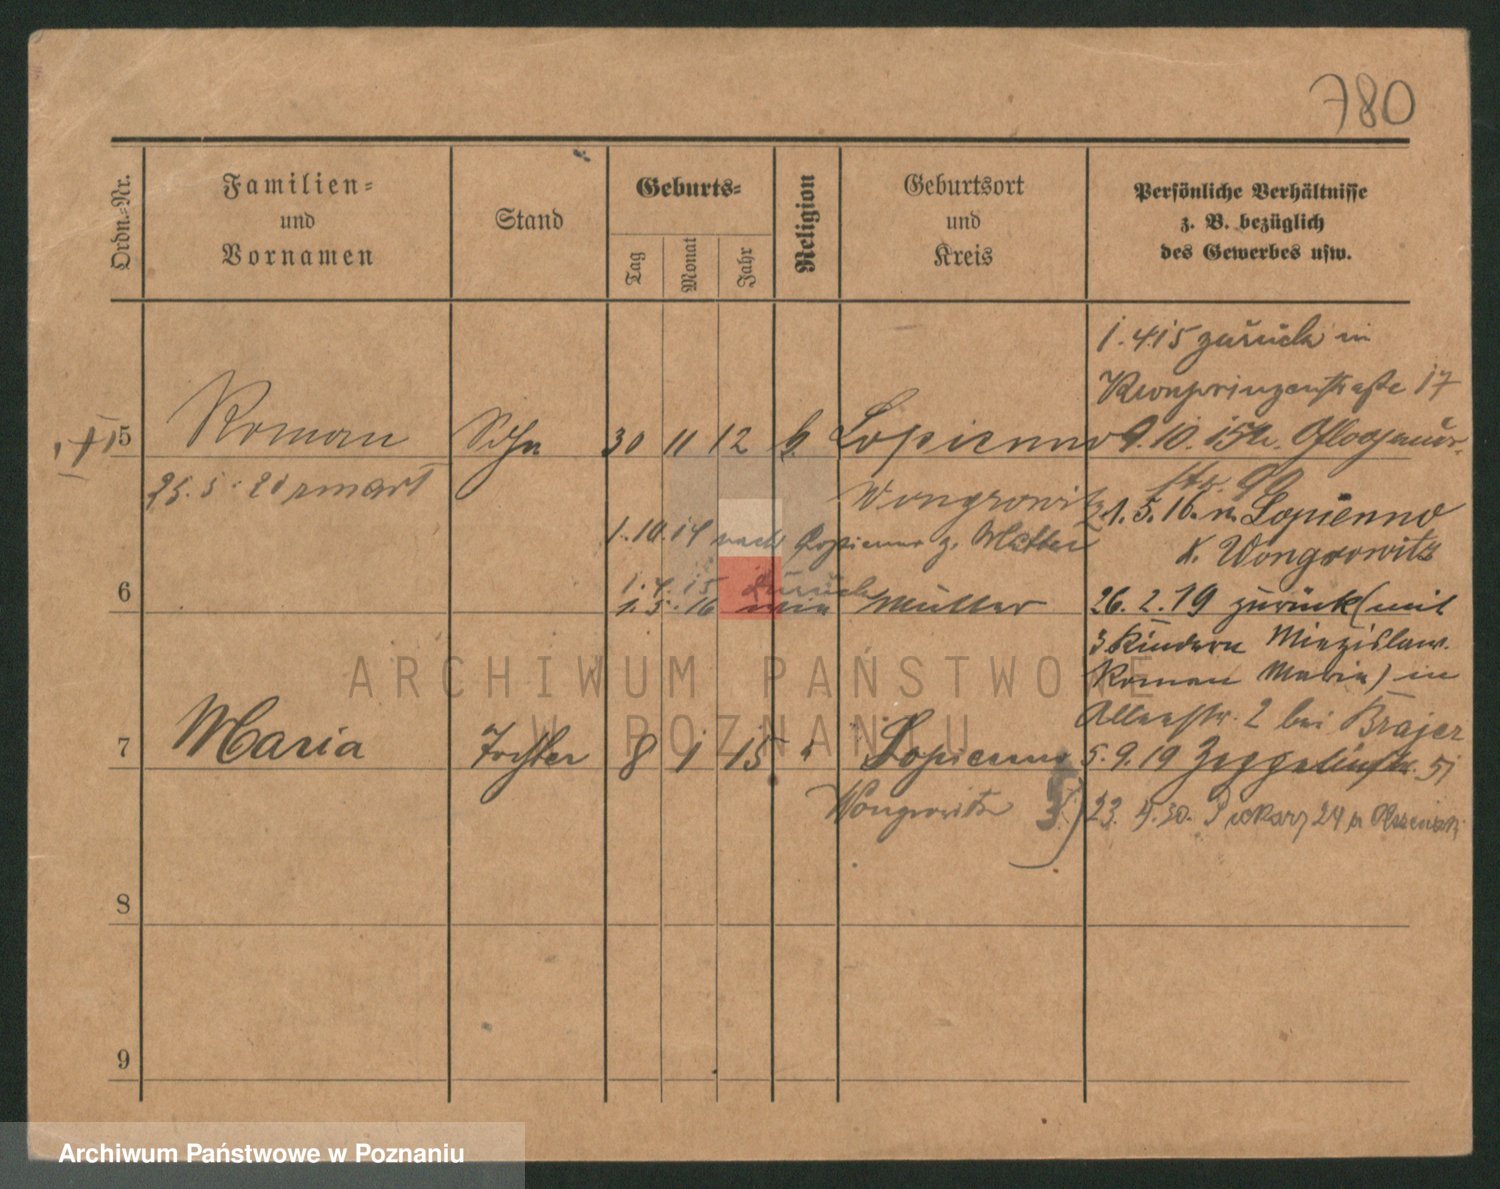 780
Ordn.=Nr.
Familien=
und
Vornamen
Stand
Geburts=
Tag
Monat
Jahr
Religion
Geburtsort
und
Kreis
Persönliche Verhältnisse
z. B. bezüglich
des Gewerbes usw.
1.4.15 zurück in
Kronprinzenstraße 17
5 Roman Sohn 30 11 12 k. Lopienno 9.10.15 n. Glogauer-
str. 99
25.5.21 zmarł
Wongrowitz 1.5.16 n. Lopienno
K. Wongrowitz
1.10.14 nach Lopienno z. Mutter
1.4.15 zurück
6 1.5.16 wie Mutter 26.2.19 zurück (mit
3 Kindern Miezislaw.
Roman Maria) in
Allerstr. 2 bei Brajer
7 Maria Tochter 8 1 15 " Lopienno 5.9.19 Zeppelinstr. 5
Wongrowitz 23. 4.30. Piekary 24
8
9
ARCHIWUM PAŃSTWOWE
W POZNANIU
Archiwum Państwowe w Poznaniu